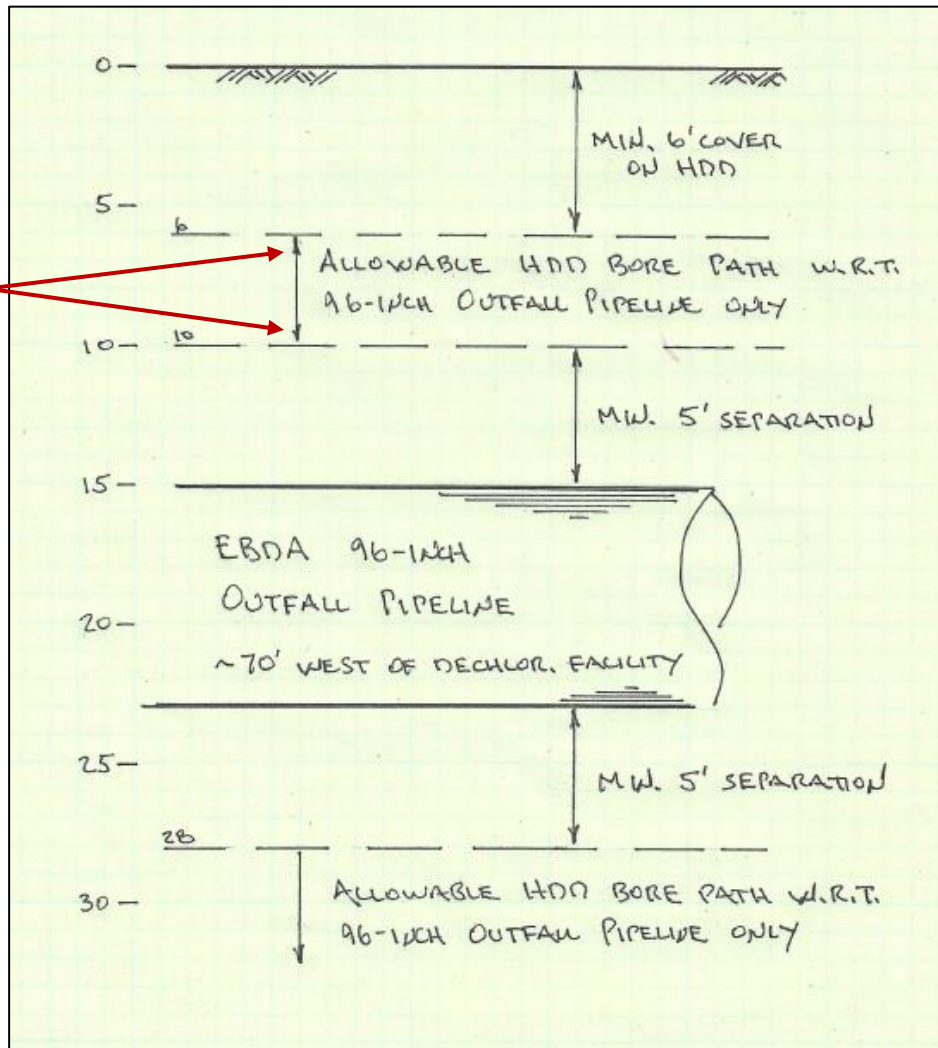 0 —
MIN. 6' COVER
ON HDD
5 —
6
ALLOWABLE HDD BORE PATH W.R.T.
96-INCH OUTFALL PIPELINE ONLY
10 —
10
MIN. 5' SEPARATION
15 —
EBDA 96-INCH
OUTFALL PIPELINE
20 —
~70' WEST OF DECHLOR. FACILITY
25 —
MIN. 5' SEPARATION
28
ALLOWABLE HDD BORE PATH W.R.T.
30 —
96-INCH OUTFALL PIPELINE ONLY